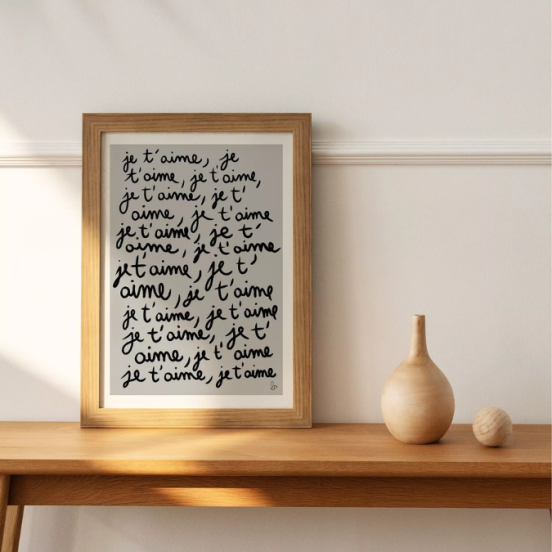 je t'aime, je
t'aime, je t'aime,
je t'aime, je t'
aime, je t'aime
je t'aime, je t'
aime, je t'aime
je t'aime, je t'
aime, je t'aime
je t'aime, je t'aime
je t'aime, je t'
aime, je t'aime
je t'aime, je t'aime